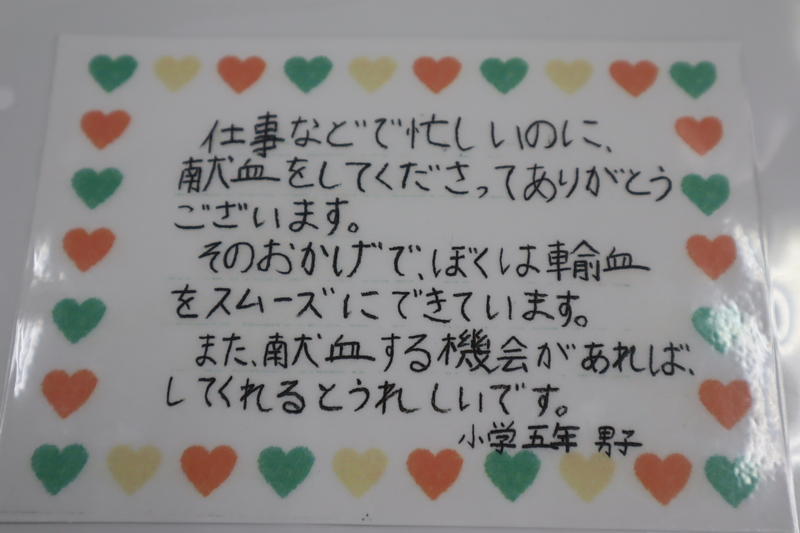 仕事などで忙しいのに、
献血をしてくださってありがとう
ございます。
そのおかげで、ぼくは輸血
をスムーズにできています。
また、献血する機会があれば、
してくれるとうれしいです。
小学五年 男子